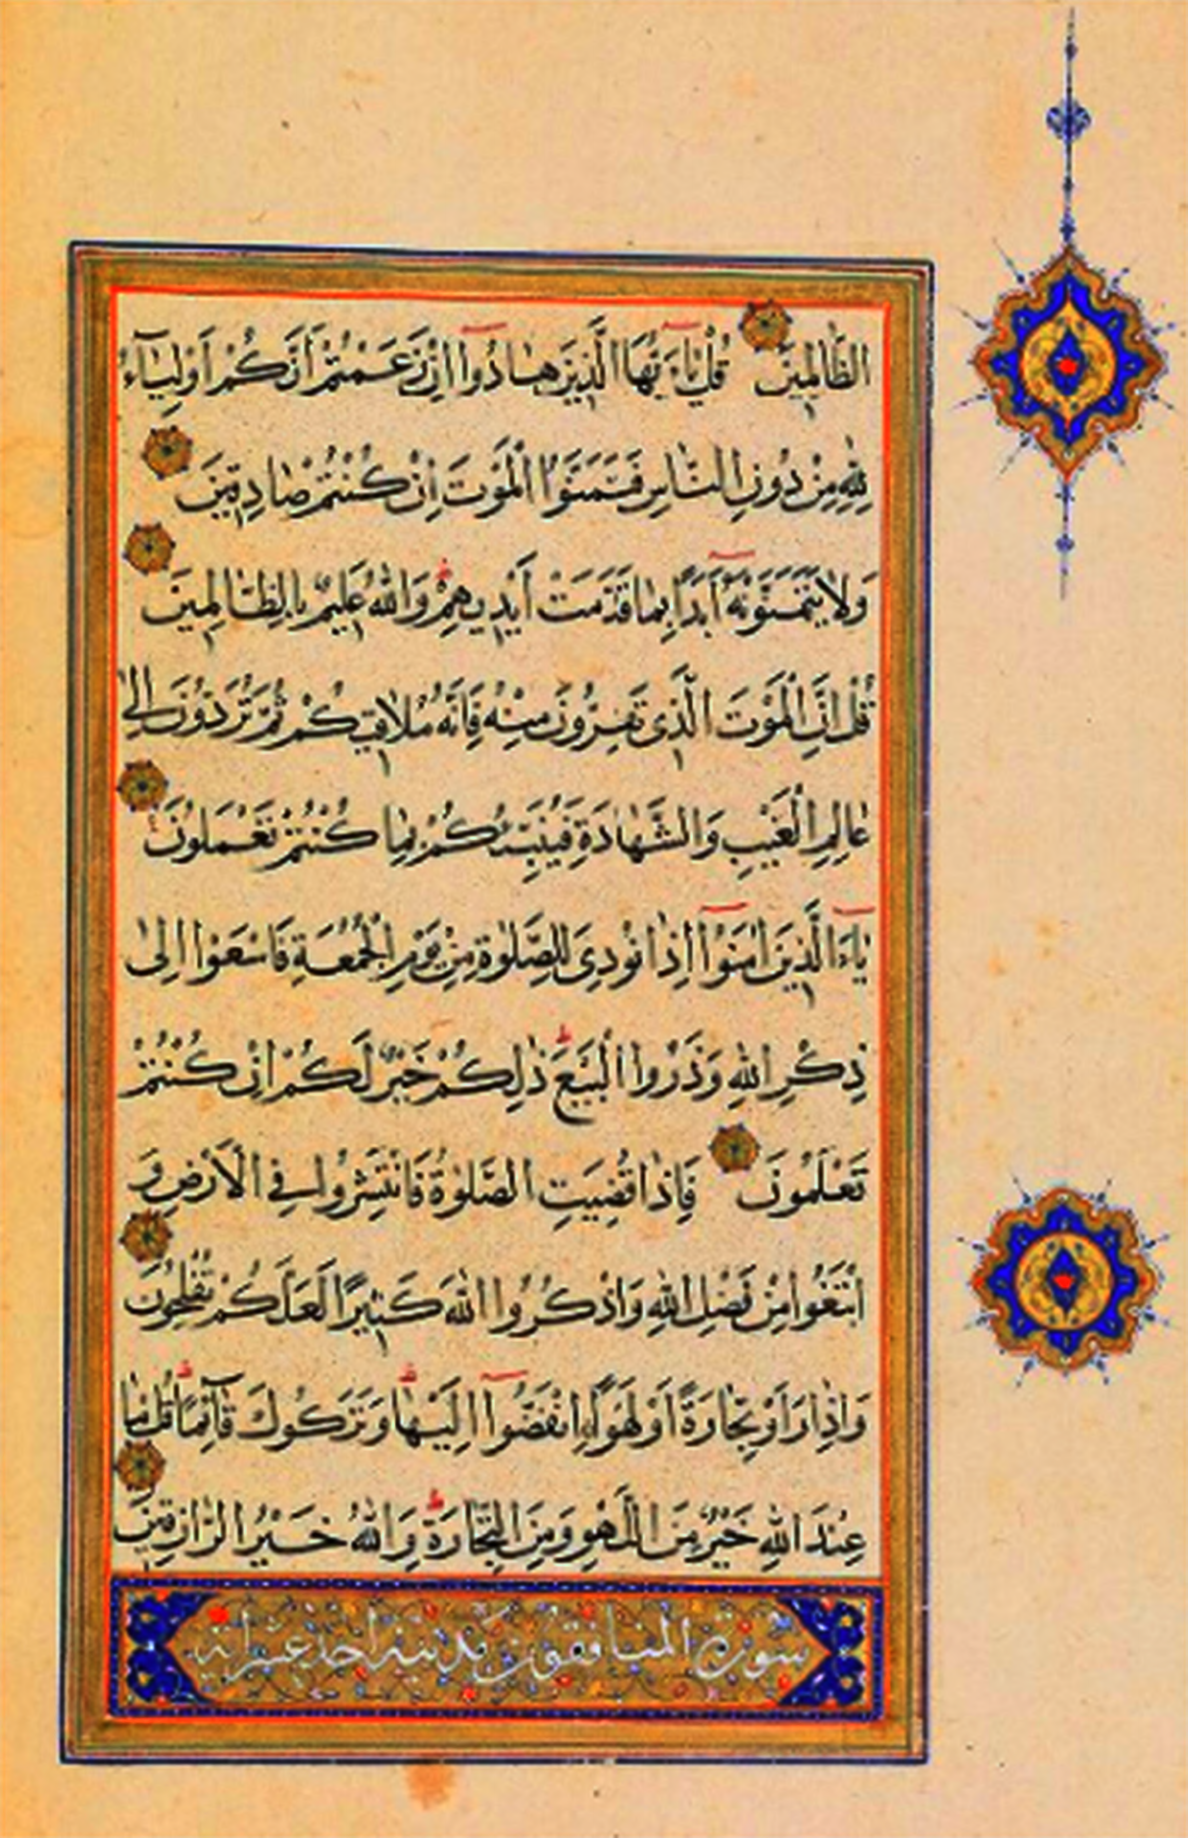 الظَّالِمِينَ قُلْ يَاءَيُّهَا الَّذِينَ هَادُوا اِنْ زَعَمْتُمْ أَنَّكُمْ اَوْلِيَآءُ
لِلّٰهِ مِنْ دُونِ النَّاسِ فَتَمَنَّوُا الْمَوْتَ اِنْ كُنْتُمْ صَادِقِينَ
وَلَا يَتَمَنَّوْنَهُ اَبَدًا بِمَا قَدَّمَتْ أَيْدِيهِمْ وَاللّٰهُ عَلِيمٌ بِالظَّالِمِينَ
قُلْ اِنَّ الْمَوْتَ الَّذِى تَفِرُّونَ مِنْهُ فَاِنَّهُ مُلَاقِيكُمْ ثُمَّ تُرَدُّونَ اِلٰى
عَالِمِ الْغَيْبِ وَالشَّهَادَةِ فَيُنَبِّئُكُمْ بِمَا كُنْتُمْ تَعْمَلُونَ
يَاءَ الَّذِينَ اٰمَنُوٓا اِذَا نُودِىَ لِلصَّلٰوةِ مِنْ يَوْمِ الْجُمُعَةِ فَاسْعَوْا اِلٰى
ذِكْرِ اللّٰهِ وَذَرُوا الْبَيْعَ ذٰلِكُمْ خَيْرٌ لَكُمْ اِنْ كُنْتُمْ
تَعْلَمُونَ فَاِذَا قُضِيَتِ الصَّلٰوةُ فَانْتَشِرُوا فِي الْاَرْضِ وَ
ابْتَغُوا مِنْ فَضْلِ اللّٰهِ وَاذْكُرُوا اللّٰهَ كَثِيرًا لَعَلَّكُمْ تُفْلِحُونَ
وَاِذَا رَاَوْ تِجَارَةً اَوْ لَهْوًا ِانْفَضُّوٓا اِلَيْهَا وَتَرَكُوكَ قَآئِمًا قُلْ مَا
عِنْدَ اللّٰهِ خَيْرٌ مِنَ اللَّهْوِ وَمِنَ التِّجَارَةِ وَاللّٰهُ خَيْرُ الرَّازِقِينَ
سورة المنافقون مدنية احد عشر اية